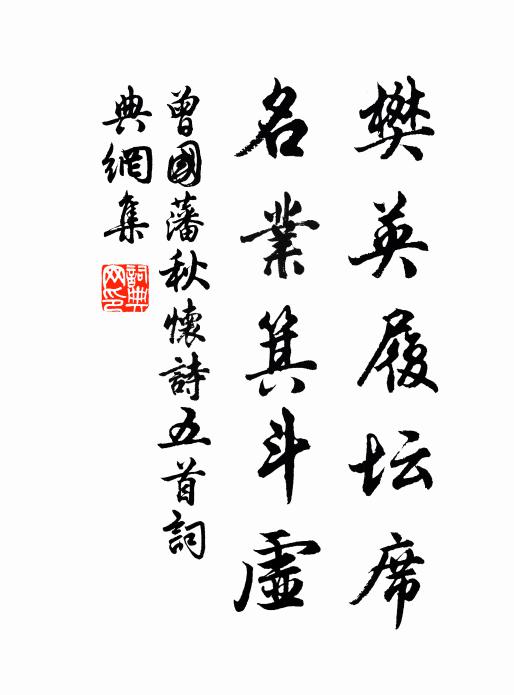 樊英履坛席
名業箕斗虛
曾國藩秋懷詩五首詞
典網集
詞典網印